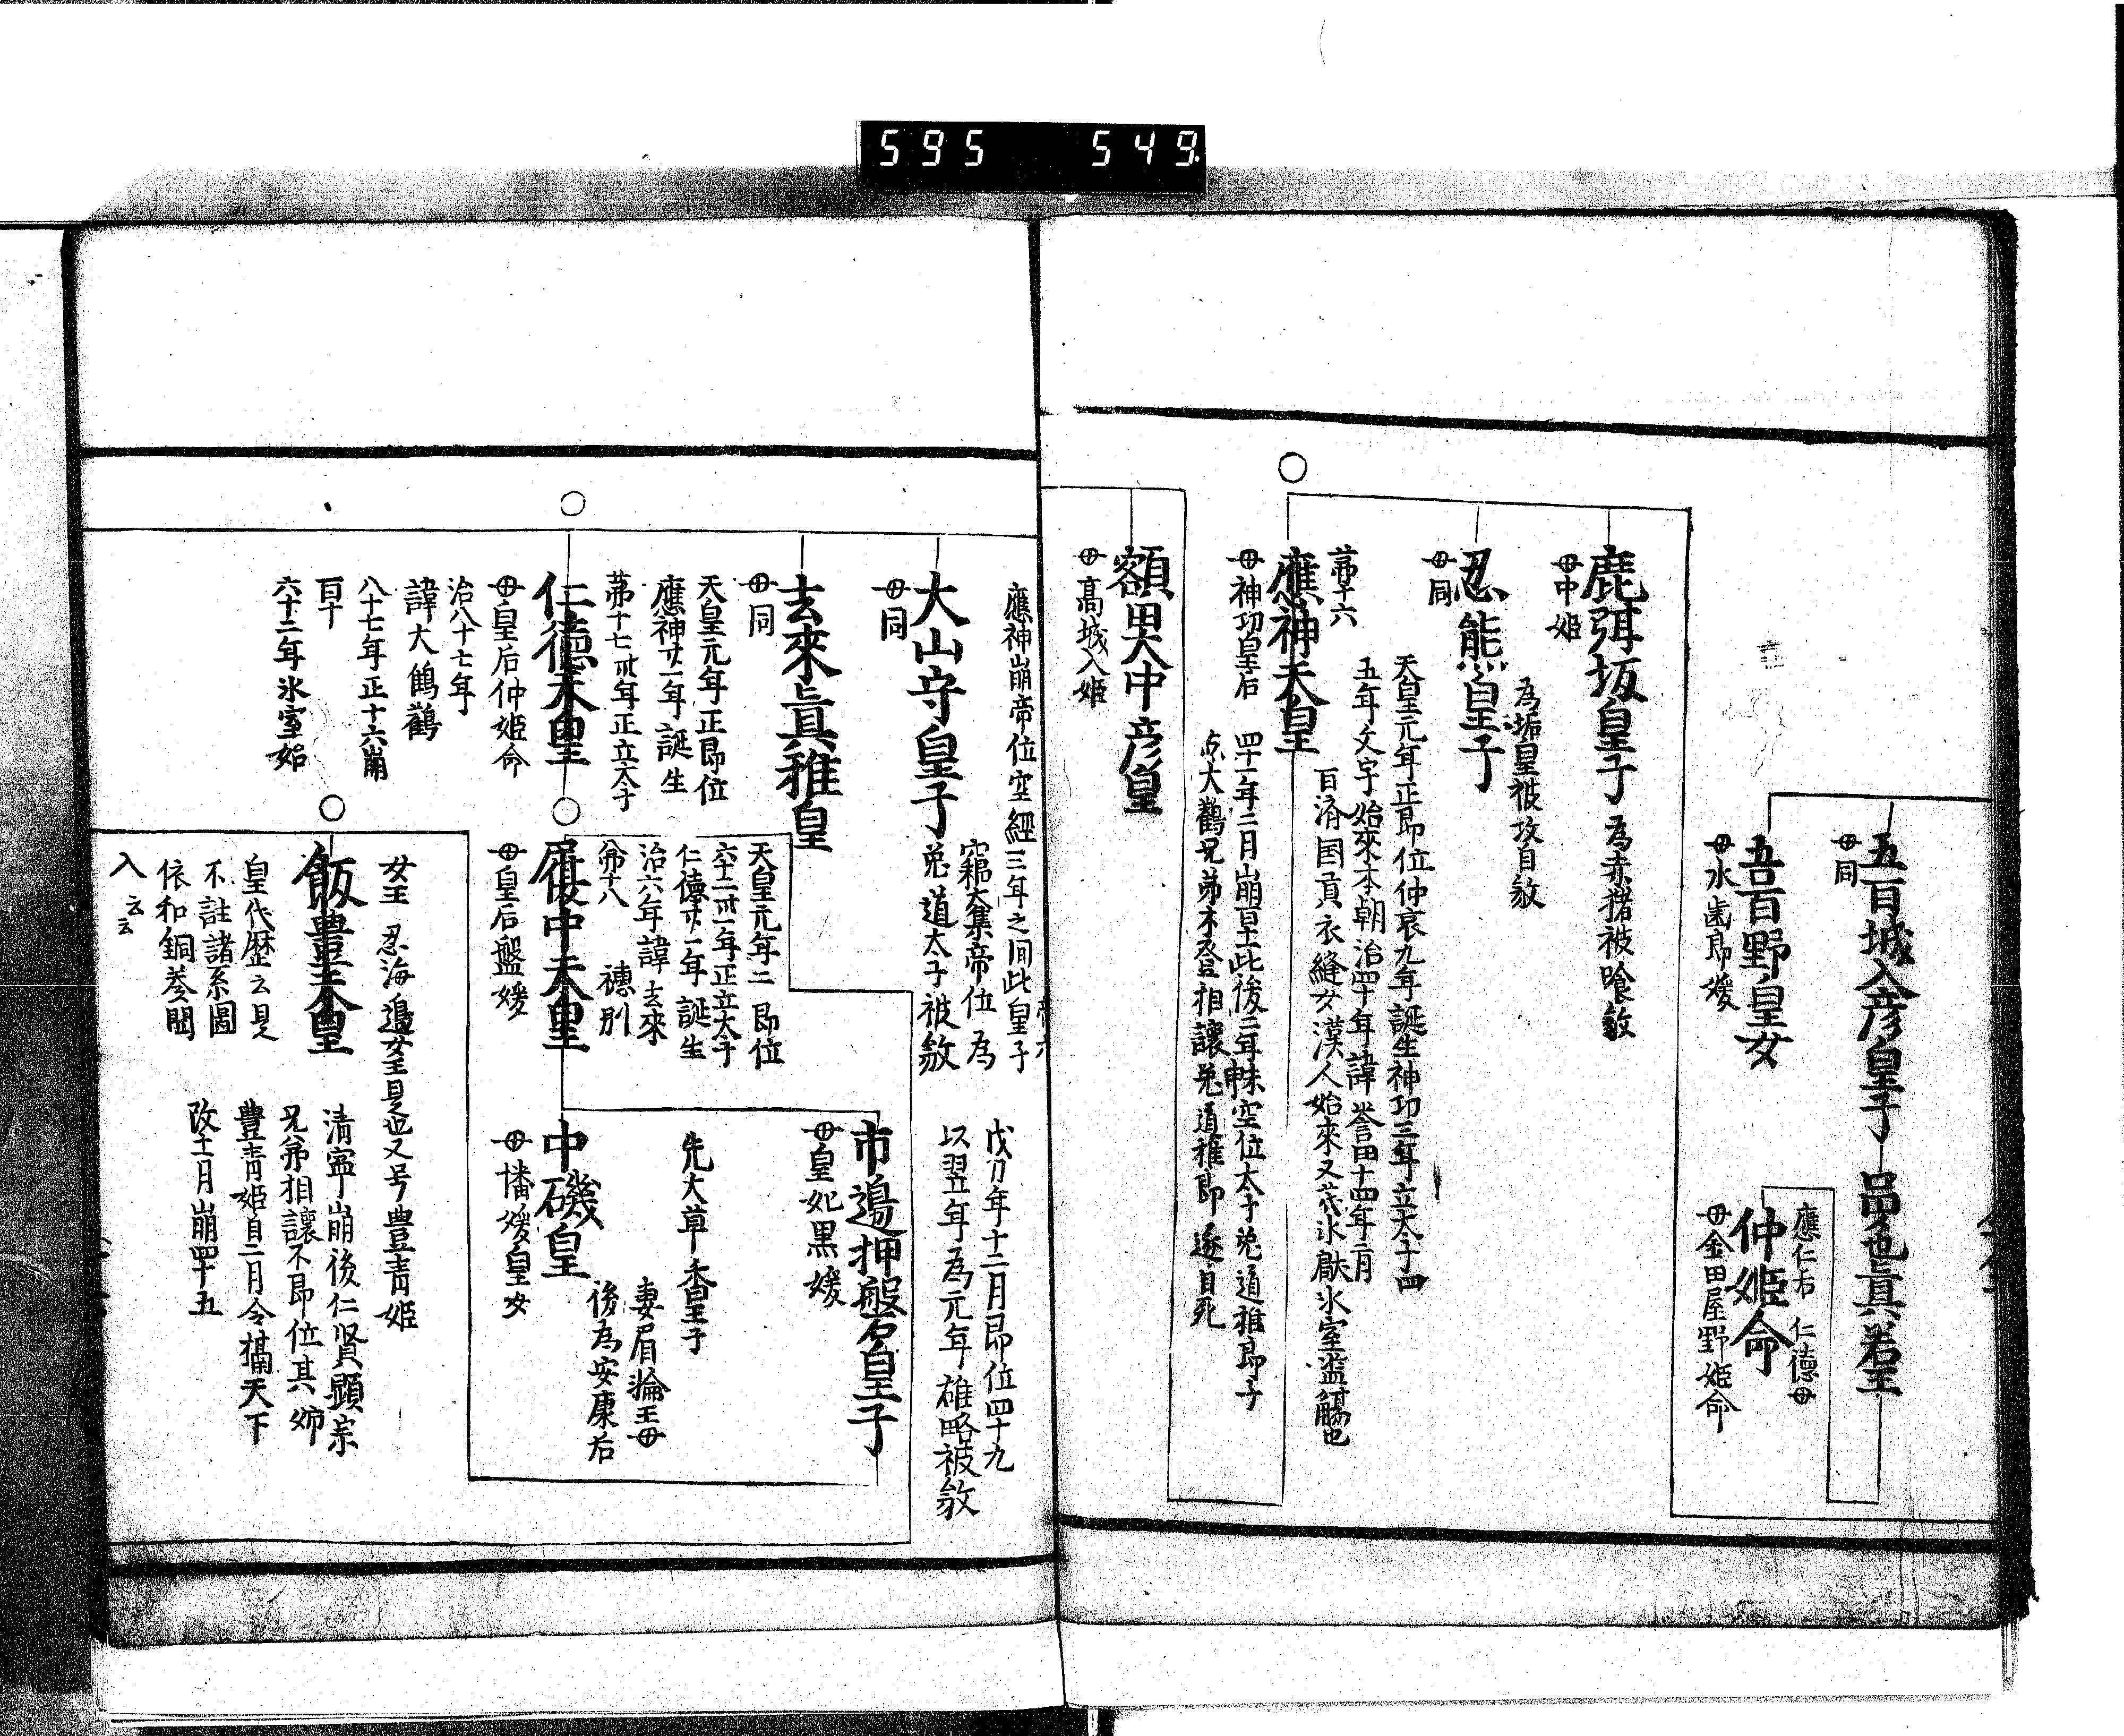 595 549
五百城入彦皇子
母同
品也眞若王
五百野皇女
母水歯郎媛
應仁后 仁德母
仲姫命
母金田屋野姫命
鹿弭坂皇子
為赤猪被喰敚
母中姫
為垢皇被攻自敚
忍熊皇子
母同
天皇元年正即位仲哀九年誕生神功三年立太子四
五年文字始來本朝治四十年諱誉田十四年二月
苐十六
百済国貢衣縫女漢人始來又
氷室盗觴也
應神天皇
母神功皇后
四十一年二月崩百十此後二年
空位太子兎道稚郎子
大鶴兄苐不登相讓兎道稚郎遂自死
額田大中彦皇
母高城入姫
應神崩帝位空經三年之间此皇子
窺大集帝位為
兎道太子被敚
大山守皇子
母同
去來眞稚皇
母同
天皇元年正即位
應神廿一年誕生
苐十七 卅年正立太子
仁德天皇
母皇后仲姫命
治八十七年
諱大鶴鷯
八十七年正十六崩
百十
六十二年氷室始
戊刀年十二月即位四十九
以翌年為元年 雄略被敚
市邉押盤皇子
母皇妃黒媛
天皇元年二即位
六十二卅一年正立太子
仁德廿一年誕生
治六年諱去來
苐十八 穗別
履中天皇
母皇后盤媛
先大草香皇子
妻眉淪王母
後為安康后
中磯皇
母幡媛皇女
女王 忍海邉女王是也又号豊青姫
飯豊天皇
清寧崩後仁贤顕宗
兄弟相讓不即位其姉
豊青姫自二月令摛天下
改十一月崩四十五
皇代歴云是
不註諸系圖
依和銅奏閲
入云云